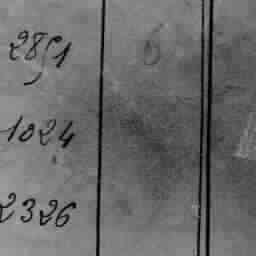 2851
1024
2326